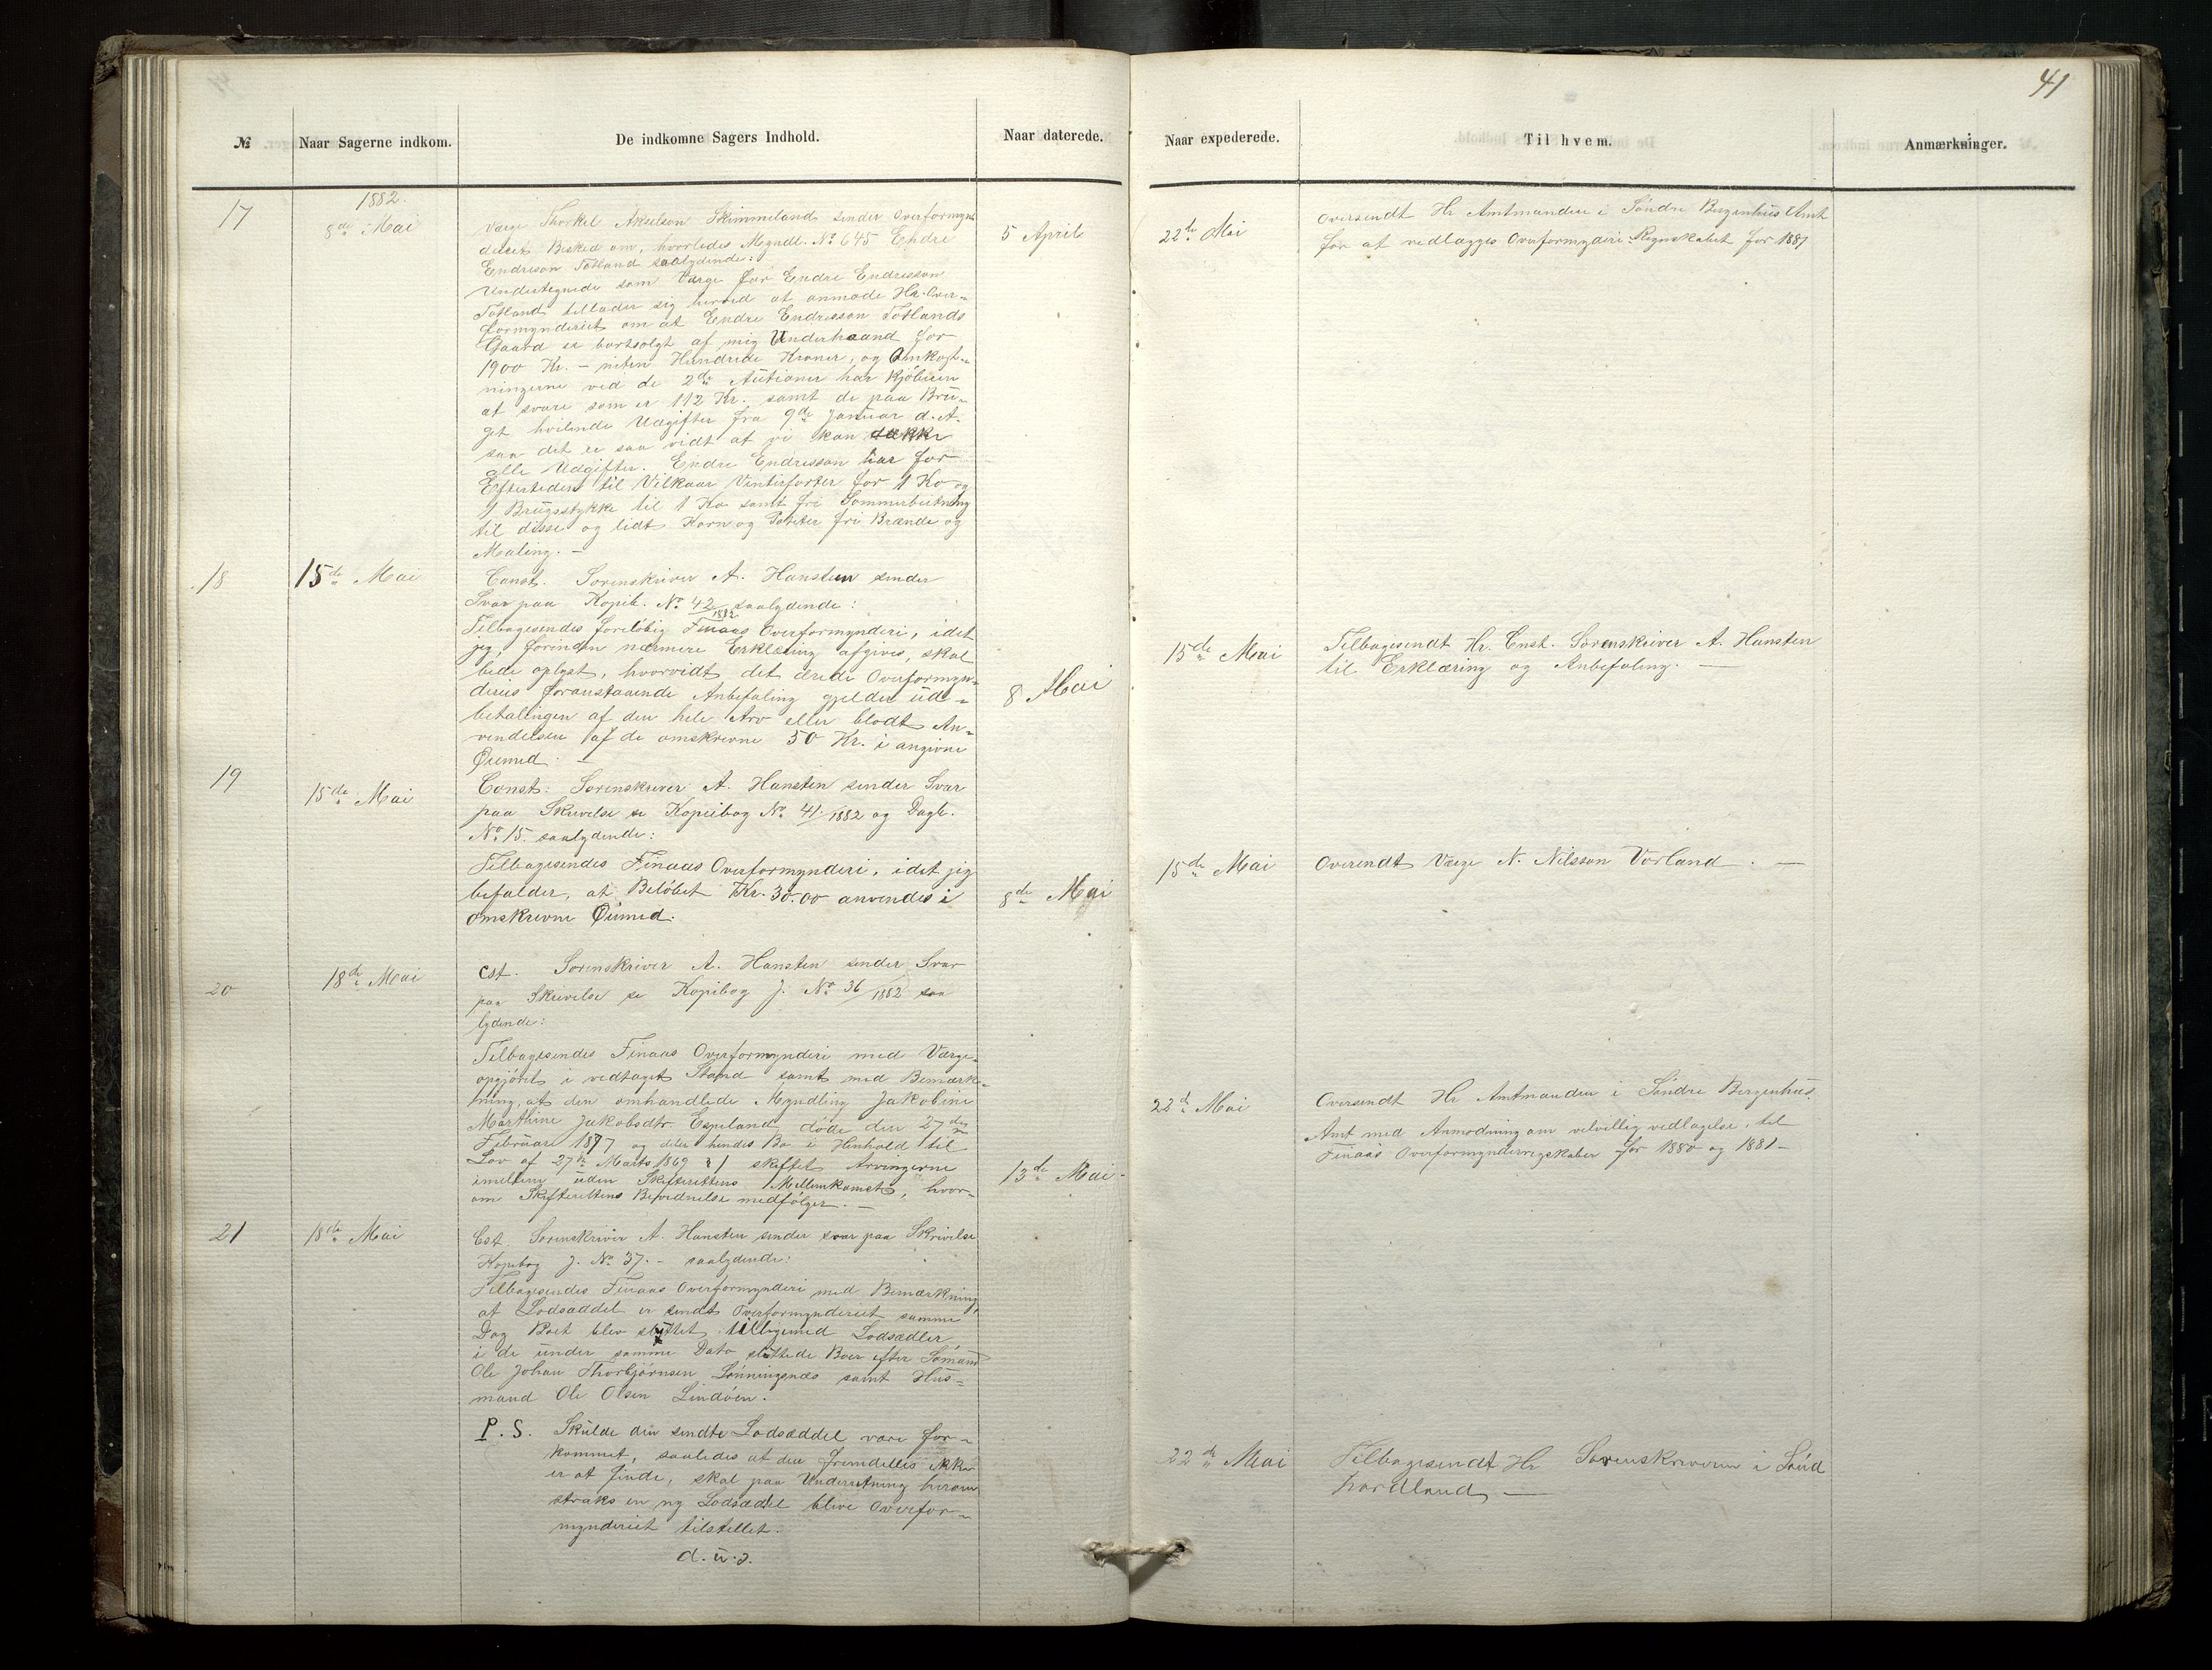 41
№ Naar Sagerne indkom. De indkomne Sagers Indhold. Naar daterede. Naar expederede. Til hvem. Anmærkninger.
1882.
17 8de Mai
Værge Thorkel Akselson Skimmeland sender Overformyn
deriet Besked om, hvorledes Myndl. No 645 Endre
Endreson Totland saalydende:
Undertegnede som Værge for Endre Endresson
Totland tillader sig herved at anmode Hr. Over-
formynderiet om at Endre Endresson Totlands
Gaard er bortsolgt af mig Underhaand for
1900 Kr. – niten Hundrede Kroner, og Omkost-
ningerne ved de 2de Auctioner har Kjøberen
at svare som er 112 Kr. samt de paa Bru-
get hvilende Udgifter fra 9de Januar d. A.
saa det er saa vidt at vi kan dække
alle Udgifter. Endre Endresson har for
Eftertiden til Vilkaar Vinterforter for 1 Ko og
1 Brugsstykke til 1 Ko samt fri Sommerbeitning
til disse og lidt Korn og Poteter fri Brænde og
Maling. –
5 April
22de Mai
Oversendt Hr Amtmanden i Søndre Bergenhus Amt
for at vedlægges Overformynderi-Regnskabet for 1881
18 15de Mai
Const. Sorenskriver A. Hansteen sender
Svar paa Kopib. No 42/1882 saalydende:
Tilbagesendes foreløbig Finaas Overformynderi, idet
jeg, forinden nærmere Erklæring afgives, skal
bede oplyst, hvorvidt det ærede Overformyn-
deries foranstaaende Anbefaling gjelder ud-
betalingen af den hele Arv eller blodt An-
vendelsen af de omskrevne 50 Kr. i angivne
Øiemed. –
8 Mai
15de Mai
Tilbagesendt Hr. Cnst. Sorenskriver A. Hansten
til Erklæring og Anbefaling. –
19 15de Mai
Const: Sorenskriver A. Hansten sender Svar
paa Skrivelse se Kopiebog No 41/1882 og Dagb.
No 15. saalydende:
Tilbagesendes Finaas Overformynderi, idet jeg
befalder, at Beløbet Kr. 30.00 anvendes i
omskrevne Øiemed.
8de Mai
15de Mai
Oversendt Værge N. Nilsson Vorland. –
20 18de Mai
Cst. Sorenskriver A. Hansten sender Svar
paa Skrivelse se Kopibog J. No 36/1882 saa
lydende:
Tilbagesendes Finaas Overformynderi med Værge-
opgjøret i vedtaget Stand samt med Bemærk-
ning, at den omhandlede Myndling Jakobine
Marthine Jakobsdtr. Espeland døde den 27den
Februar 1877 og blev hendes Bo i Henhold til
Lov af 27de Marts 1869 § 1 skiftet Arvingerne
imellem uden Skifterettens Mellemkomst, hvor-
om Skifterettens Bevidnelse medfølger. –
13de Mai –
22de Mai
Oversendt Hr Amtmanden i Søndre Bergenhus
Amt med Anmodning om velvillig vedlagelse, til
Finaas Overformynderregnskaber for 1880 og 1881 –
21 18de Mai
Cst. Sorenskriver A. Hansten sender svar paa Skrivelse
Kopibog J. No 37. – saalydende:
Tilbagesendes Finaas Overformynderi med Bemærkning,
at Lodsæddel er sendt Overformynderiet samme
Dag Boet blev sluttet tilligemed Lodsædler
i de under samme Dato sluttede Boer efter Sømand
Ole Johan Thorbjørnsen Lønningsnæs samt Hus-
mand Ole Olsen Lindøen.
P. S. Skulde den sendte Lodsæddel være for-
kommet, saaledes at den fremdelles ikke
er at finde, skal paa Underretning herom
straks en ny Lodsæddel blive Overfor-
mynderiet tilstillet.
d. u. s.
22de Mai
Tilbagesendt Hr Sorenskriveren i Sønd
hordland –